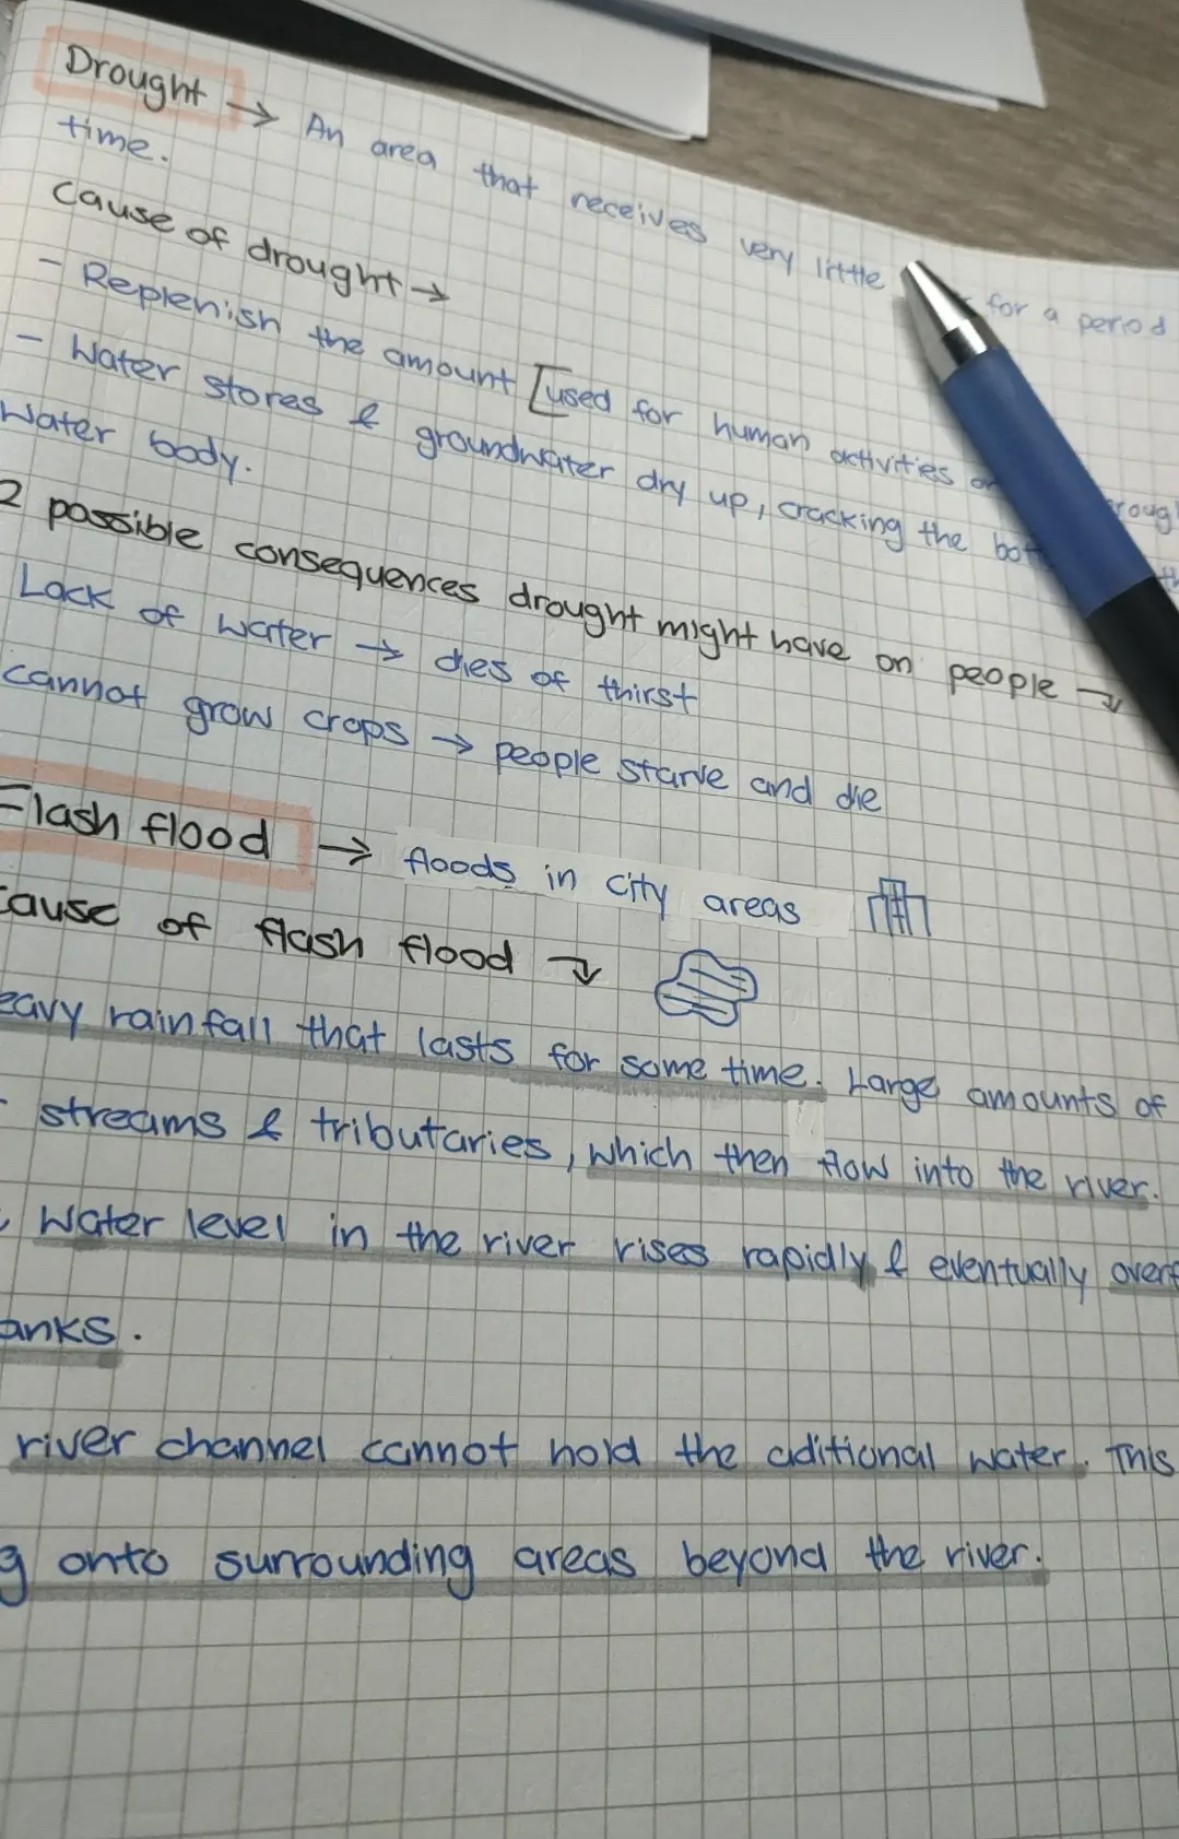 Drought → An area that receives very little for a period
time.
cause of drought →
- Replenish the amount [used for human activities
- Water stores & groundwater dry up, cracking the
Water body.
2 possible consequences drought might have on people →
Lack of water → dies of thirst
cannot grow crops → people starve and die
Flash flood → floods in city areas
cause of flash flood ↴
eavy rainfall that lasts for some time. Large amounts of
streams & tributaries, which then flow into the river.
Water level in the river rises rapidly & eventually overf
anks.
river channel cannot hold the aditional water. This
g onto surrounding areas beyond the river.